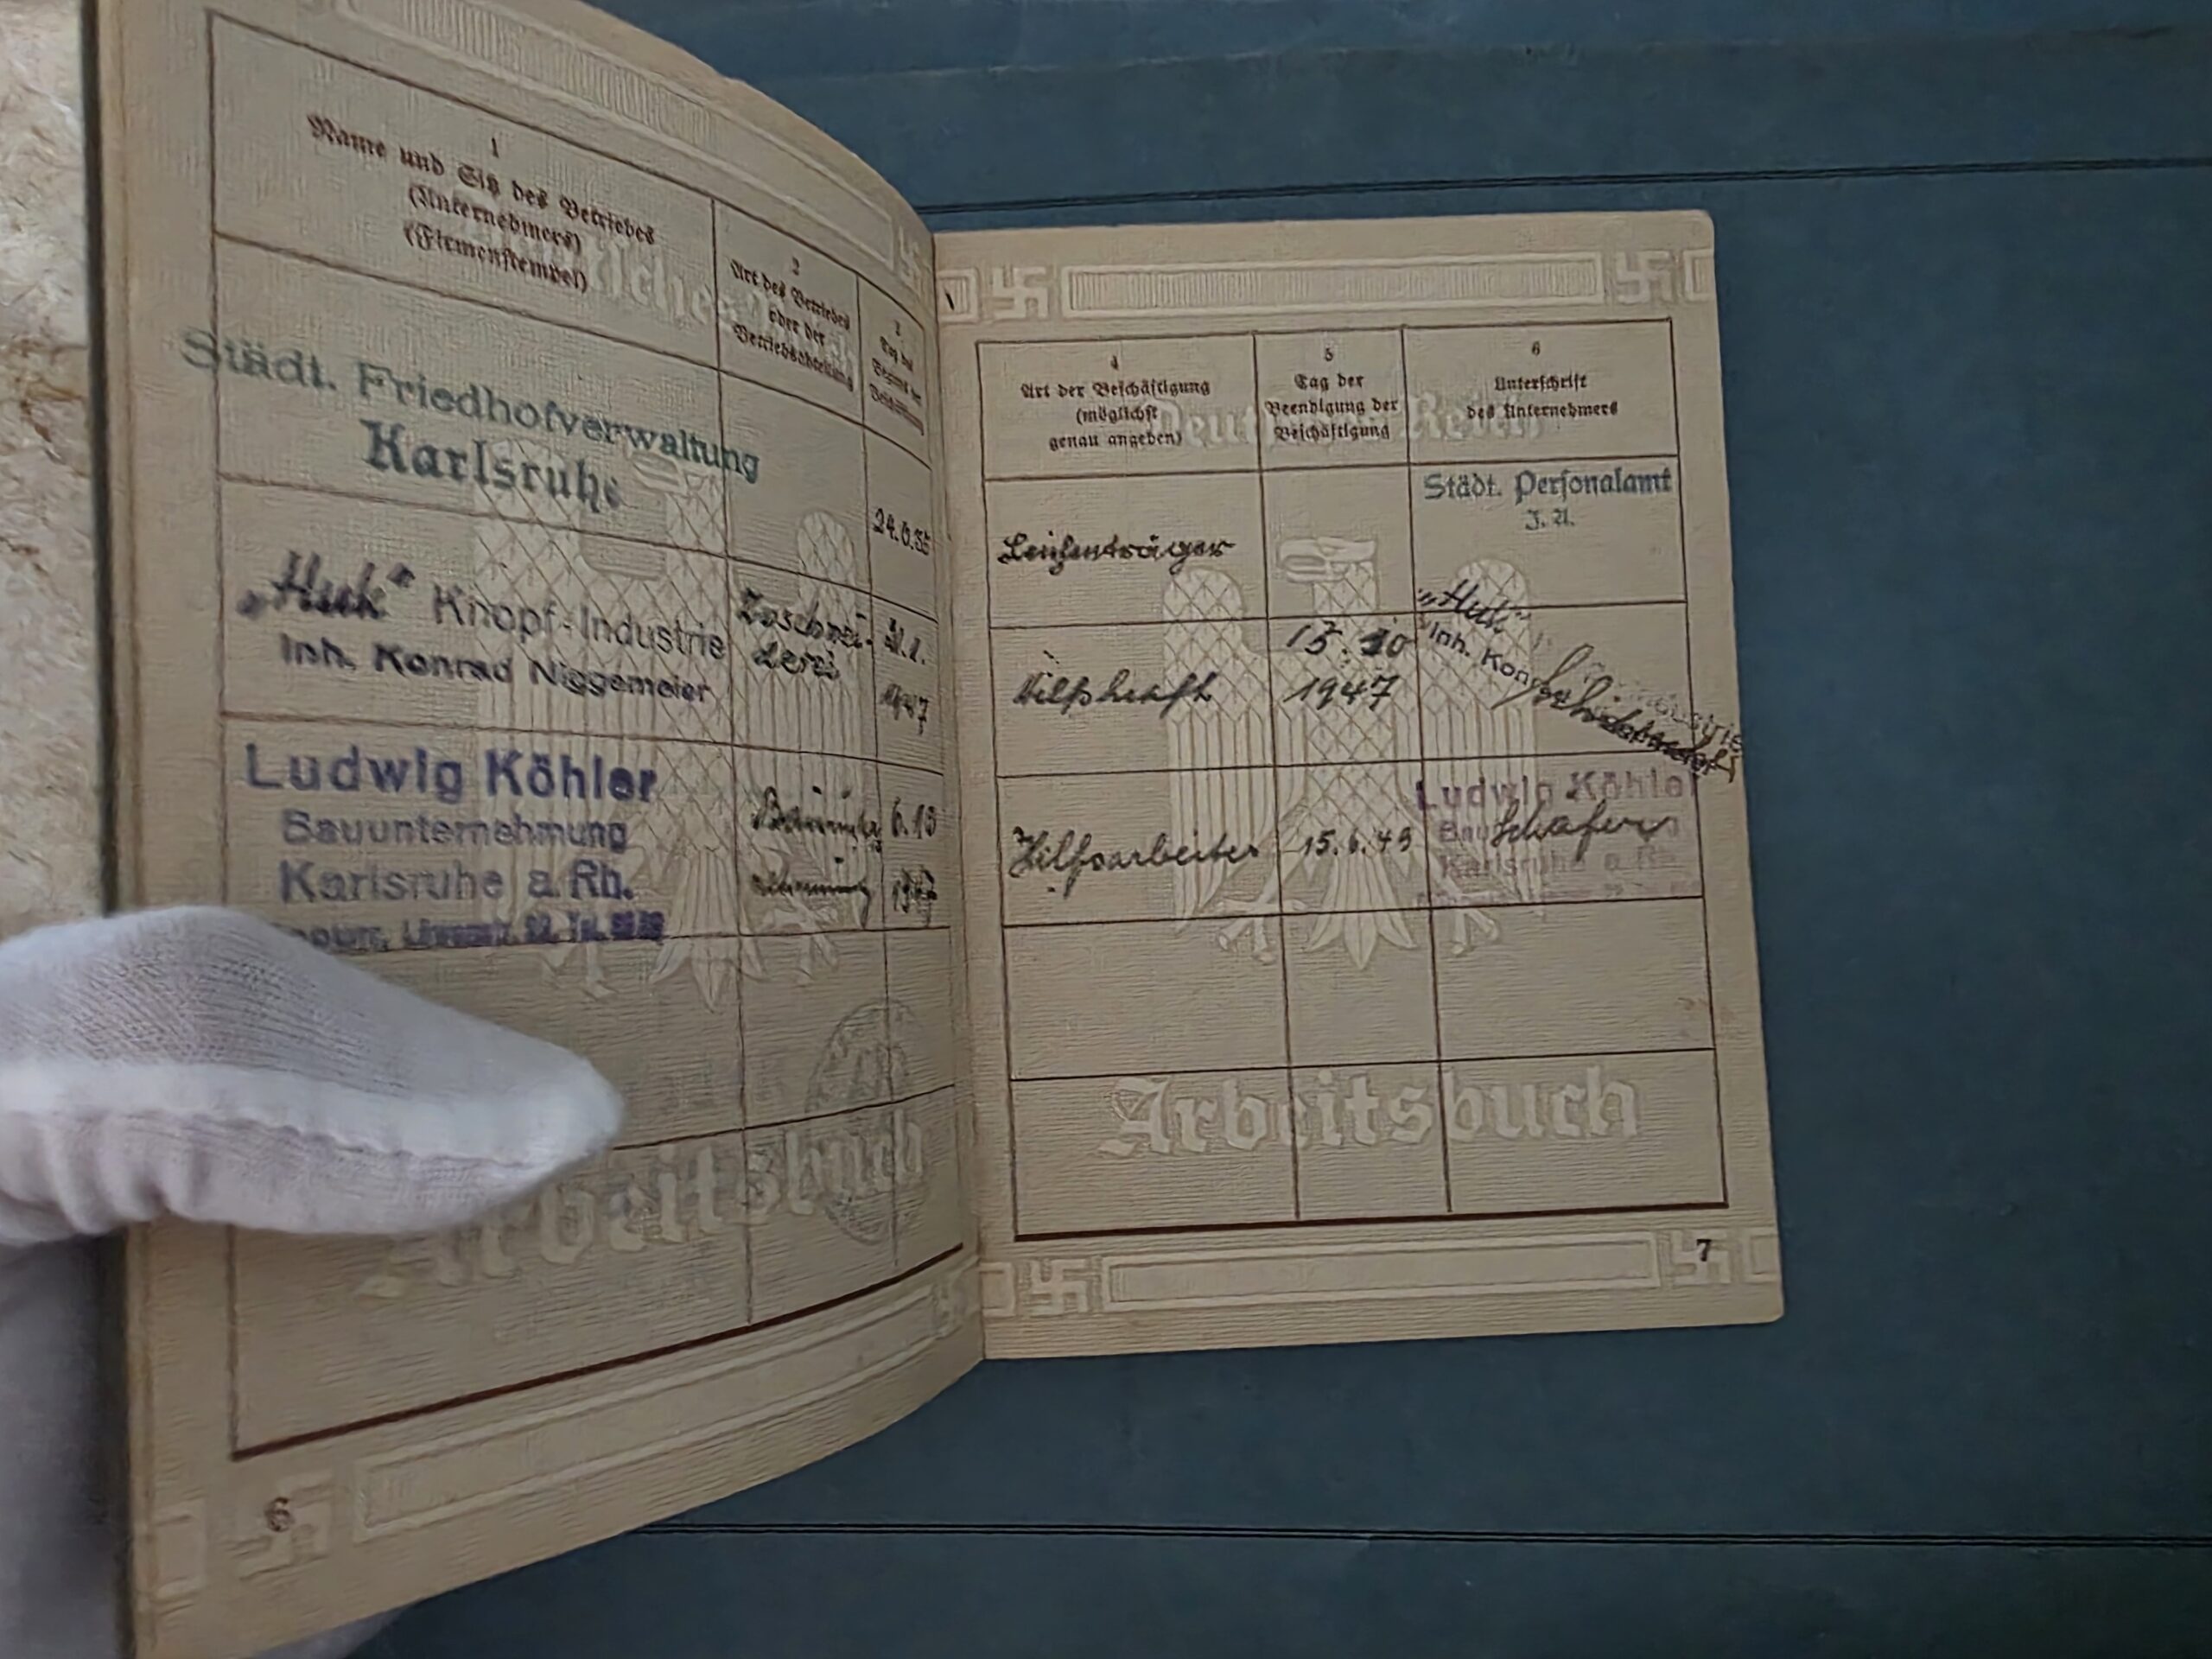 1
Name und Sitz des Betriebes
(Unternehmers)
(Firmenstempel)
2
Art des Betriebes
oder der
Betriebsabteilung
3
Tag des
Beginns der
Beschäftigung
Städt. Friedhofverwaltung
Karlsruhe
24.6.35
"Huk" Knopf-Industrie
Inh. Konrad Niggemeier
1947
Ludwig Köhler
Bauunternehmung
Karlsruhe a. Rh.
6.10
Arbeitsbuch
6
4
Art der Beschäftigung
(möglichst
genau angeben)
5
Tag der
Beendigung der
Beschäftigung
6
Unterschrift
des Unternehmers
Deutsches Reich
Leichenträger
Städt. Personalamt
J. A.
Hilfskraft
15. 10
1947
"Huk"
Inh.
Hilfsarbeiter
15.6.49
Ludwig Köhler
Schäfer
Karlsruhe a. Rh.
Arbeitsbuch
7